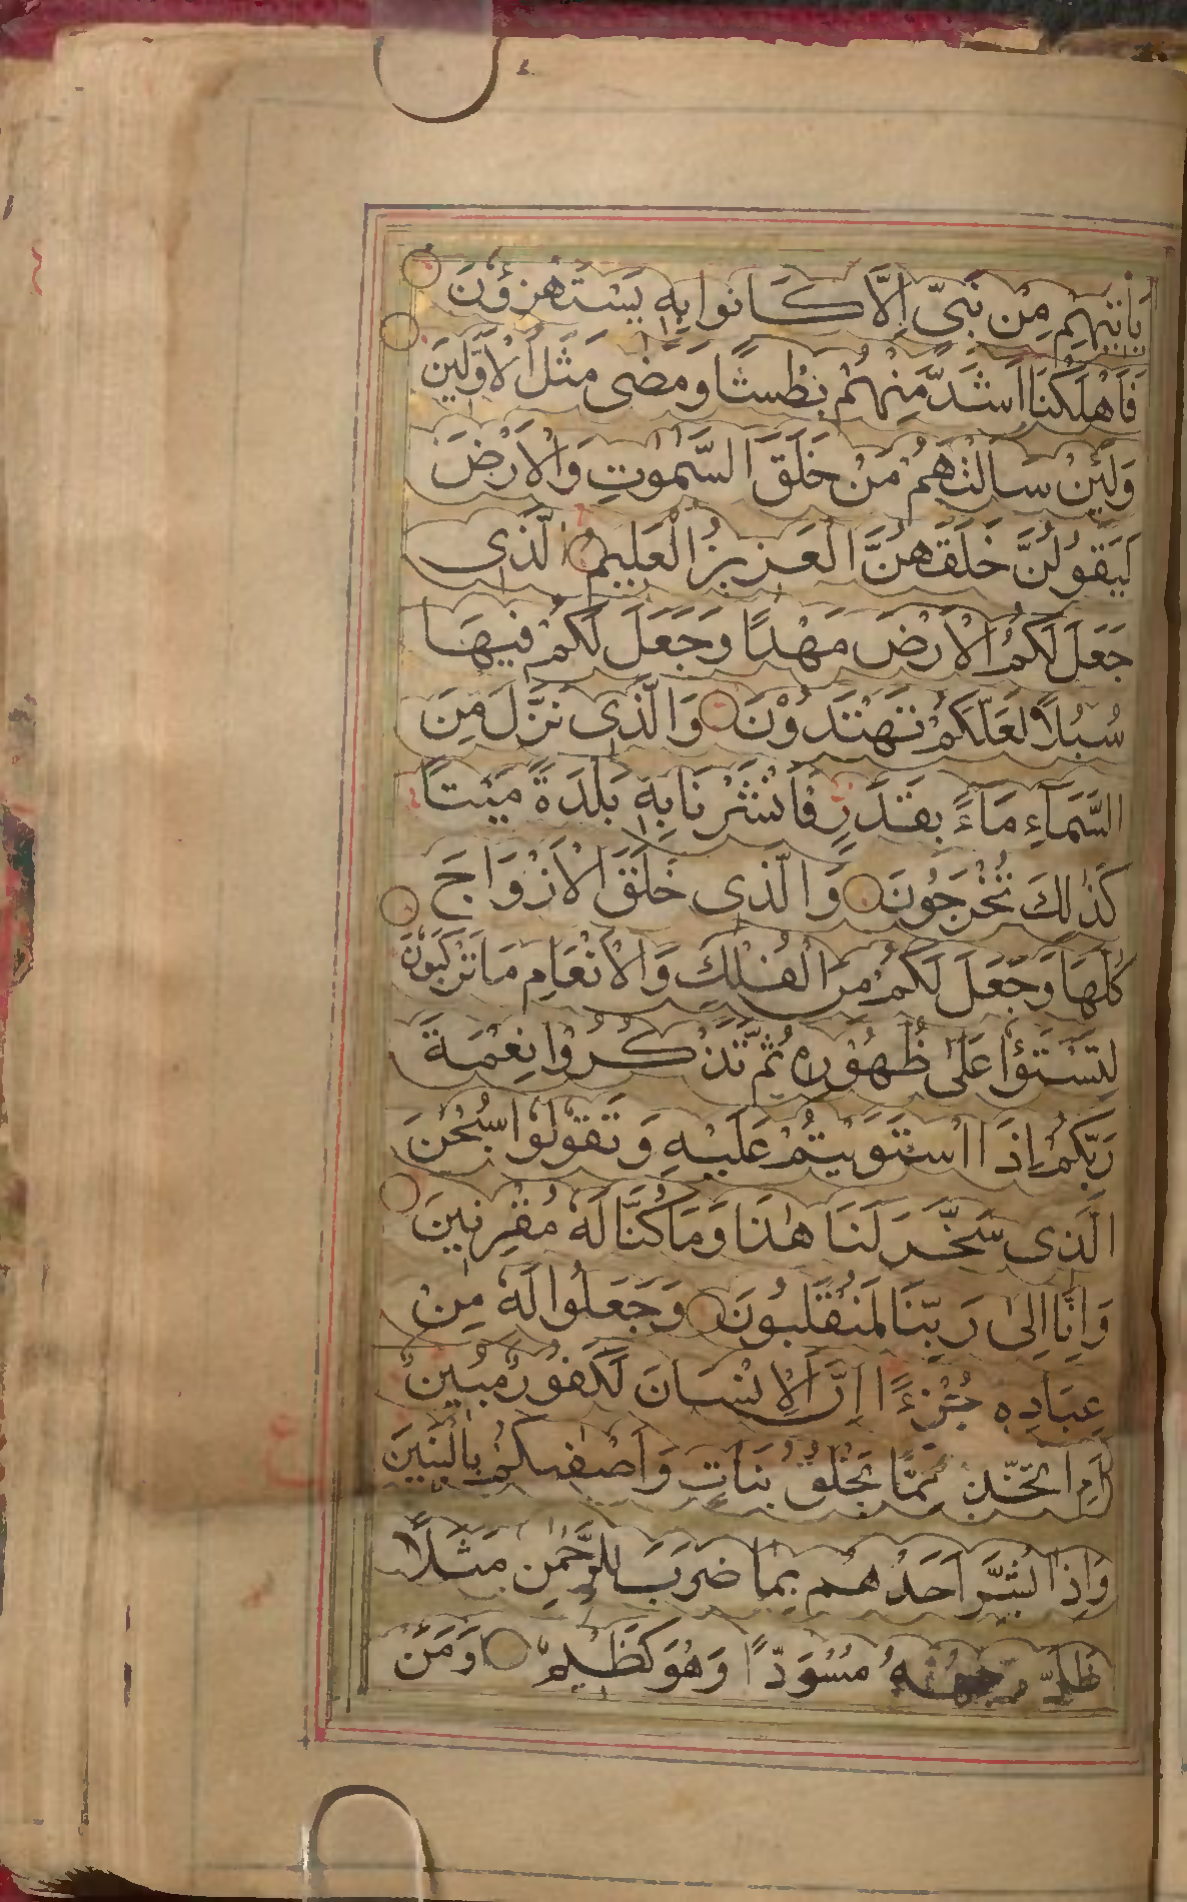 يَأْتِيهِمْ مِنْ نَبِيٍّ إِلَّا كَانُوا بِهِ يَسْتَهْزِؤُنَ
فَأَهْلَكْنَا أَشَدَّ مِنْهُمْ بَطْشًا وَمَضَى مَثَلُ الْأَوَّلِينَ
وَلَئِنْ سَأَلْتَهُمْ مَنْ خَلَقَ السَّمٰوٰتِ وَالْأَرْضَ
لَيَقُولُنَّ خَلَقَهُنَّ الْعَزِيزُ الْعَلِيمُ الَّذِى
جَعَلَ لَكُمُ الْأَرْضَ مَهْدًا وَجَعَلَ لَكُمْ فِيهَا
سُبُلًا لَعَلَّكُمْ تَهْتَدُوْنَ وَالَّذِى نَزَّلَ مِنَ
السَّمَآءِ مَآءً بِقَدَرٍ فَأَنْشَرْنَا بِهِ بَلْدَةً مَيْتًا
كَذٰلِكَ تُخْرَجُونَ وَالَّذِى خَلَقَ الْأَزْوَاجَ
كُلَّهَا وَجَعَلَ لَكُمْ مِنَ الْفُلْكِ وَالْأَنْعَامِ مَا تَرْكَبُونَ
لِتَسْتَوٗا عَلَىٰ ظُهُوْرِهِ ثُمَّ تَذْكُرُوْا نِعْمَةَ
رَبِّكُمْ إِذَا اسْتَوَيْتُمْ عَلَيْهِ وَتَقُوْلُوْا سُبْحٰنَ
الَّذِى سَخَّرَ لَنَا هٰذَا وَمَا كُنَّا لَهُ مُقْرِنِينَ
وَإِنَّا إِلىٰ رَبِّنَا لَمُنْقَلِبُونَ وَجَعَلُوا لَهُ مِنْ
عِبَادِهِ جُزْءًا إِنَّ الْإِنْسَانَ لَكَفُورٌ مُبِينٌ
أَمِ اتَّخَذَ مِمَّا يَخْلُقُ بَنَاتٍ وَأَصْفٰىكُمْ بِالْبَنِينَ
وَإِذَا بُشِّرَ أَحَدُهُمْ بِمَا ضَرَبَ لِلرَّحْمٰنِ مَثَلًا
ظَلَّ وَجْهُهُ مُسْوَدًّا وَهُوَ كَظِيمٌ أَوَمَنْ